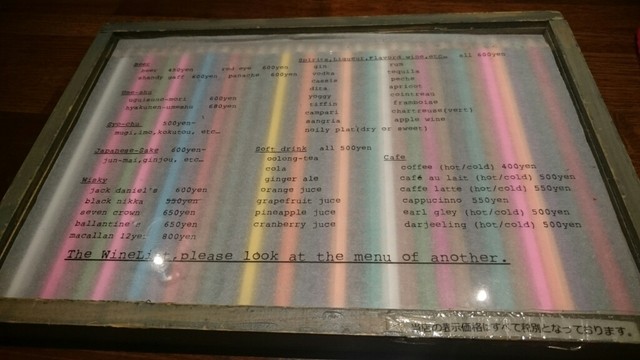 Beer
beer 600yen red eye 600yen
shandy gaff 600yen panache 600yen
Ume-shu
uguisuse-nori 600yen
hyakunen-umeshu 600yen
Syo-chu 500yen-
mugi,imo,kokutou, etc…
Japanese-Zake 600yen-
jun-mai,ginjou, etc…
Wisky
jack daniel's 600yen
black nikka 550yen
seven crown 650yen
ballantine's 650yen
macallan 12yer 800yen
Spirits,liqueur,flavord wine,etc… all 600yen
gin
vodka
cassis
dita
yoggy
tiffin
campari
sangria
nnily plat(dry or sweet)
rum
tequila
peche
apricot
cointreau
framboise
chartreuse(vert)
apple wine
Soft drink all 500yen
oolong-tea
cola
ginger ale
orange juce
grapefruit juce
pineapple juce
cranberry juce
Cafe
coffee (hot/cold) 400yen
café au lait (hot/cold) 500yen
caffe latte (hot/cold) 550yen
cappucinno 550yen
earl gley (hot/cold) 500yen
darjeeling (hot/cold) 500yen
The WineList,please look at the menu of another.
当店の表示価格はすべて税別となっております。